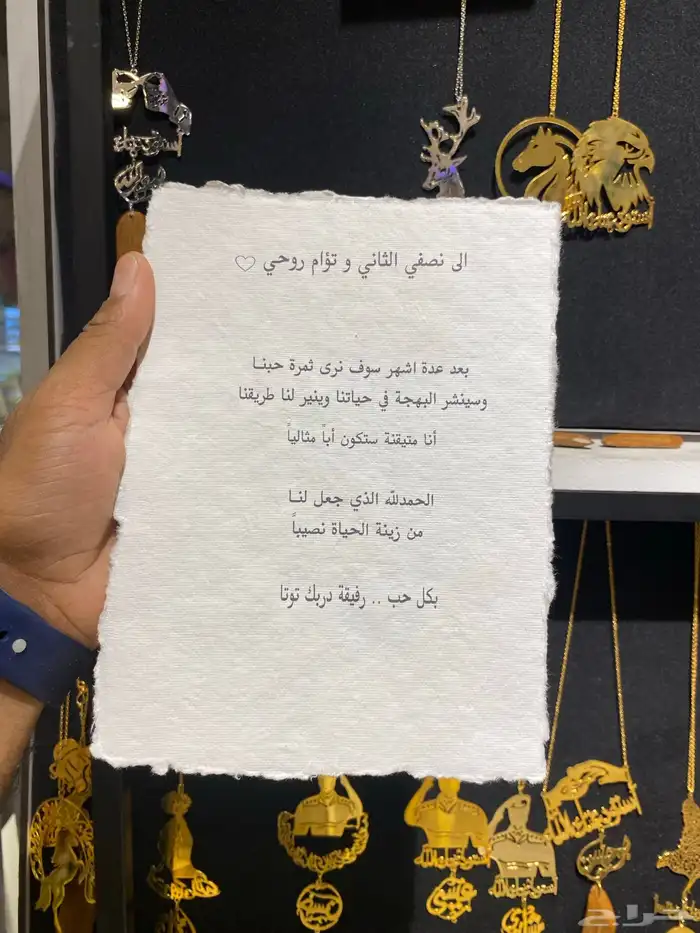 الى نصفي الثاني و تؤام روحي ♡
بعد عدة اشهر سوف نرى ثمرة حبنـا
وسينشر البهجة في حياتنا وينير لنا طريقنا
أنا متيقنة ستكون أباً مثالياً
الحمدلله الذي جعل لنـا
من زينة الحياة نصيباً
بكل حب .. رفيقة دربك توتا
استودعتك الله
استودعتك الله
حراج